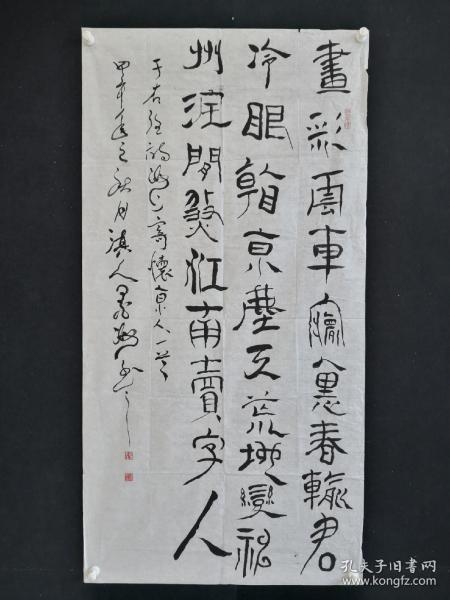 畫彩雲車裏春輸君
冷眼京塵天荒地變神
州閒煞江南賣字人
于右任詩海上寄懷京人一首
甲午年之秋月淇人
孔夫子旧书网
www.kongfz.com